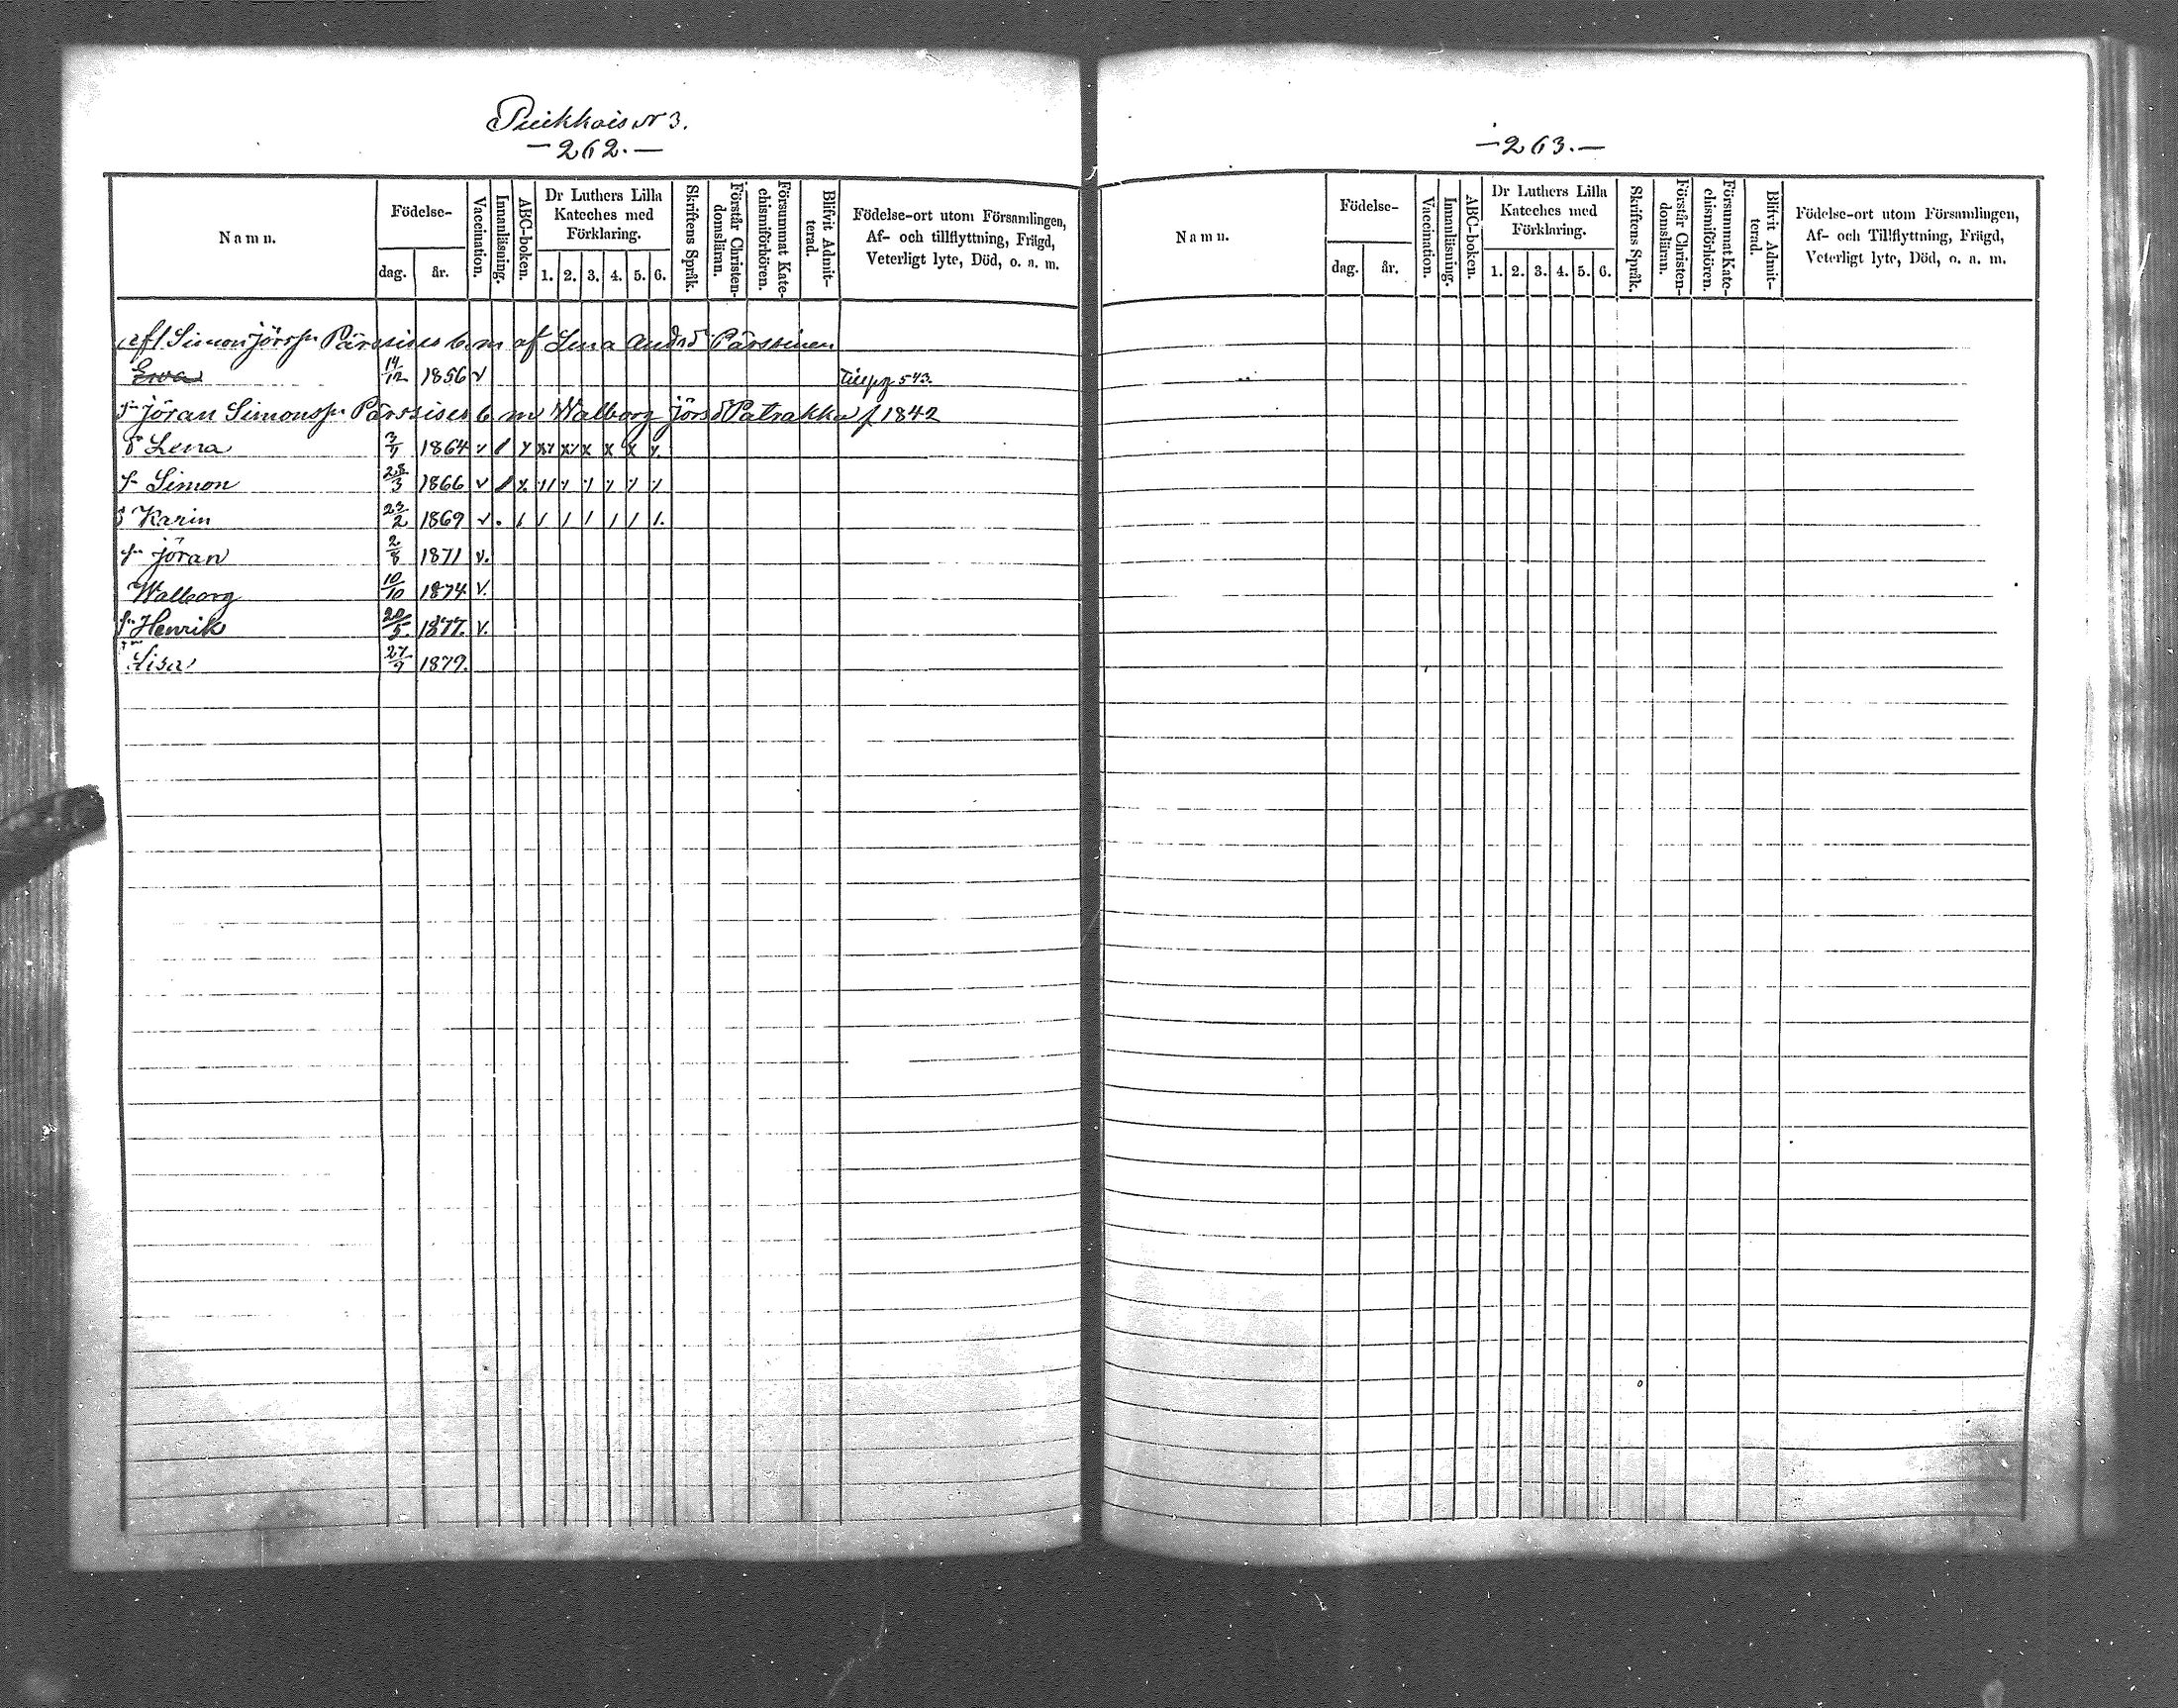 Puikkois № 3.
-262.-
Namn.
Födelse-
dag.
år.
Vaccination.
Innanläsning.
ABC-boken.
Dr Luthers Lilla
Kateches med
Förklaring.
1. 2. 3. 4. 5. 6.
Skriftens Språk.
Förstår Christen-
domsläran.
Försummat Kate-
chismiförhören.
Blifvit Admit-
terad.
Födelse-ort utom Församlingen,
Af- och tillflyttning, Frägd,
Veterligt lyte, Död, o. a. m.
afl Simon Jörss Pärssises b. m af Lena Andrd Pärssinen
Ewa 14/12 1856 v till pg 543.
Sn Jöran Simonss Pärssises b. m Walborg Jörsd Patrakka f 1842
d Lena 1864 v
Sn Simon 28/3 1866 v
d Karin 23/2 1869 v.
Sn Jöran 2/8 1871 v.
Walborg 10/10 1874 v.
Sn Henrik 20/5 1877. v.
Lisa 27/9 1879.
-263.-
Namn.
Födelse-
dag.
år.
Vaccination.
Innanläsning.
ABC-boken.
Dr Luthers Lilla
Kateches med
Förklaring.
1. 2. 3. 4. 5. 6.
Skriftens Språk.
Förstår Christen-
domsläran.
Försummat Kate-
chismiförhören.
Blifvit Admit-
terad.
Födelse-ort utom Församlingen,
Af- och Tillflyttning, Frägd,
Veterligt lyte, Död, o. a. m.